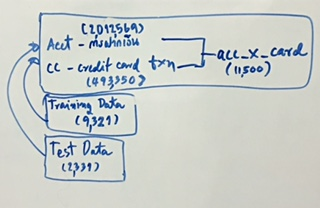 (2012569)
Acct -
CC - credit card txn
(493,350)
acc_x_card
(11,500)
Training Data
(9,321)
Test Data
(2,331)